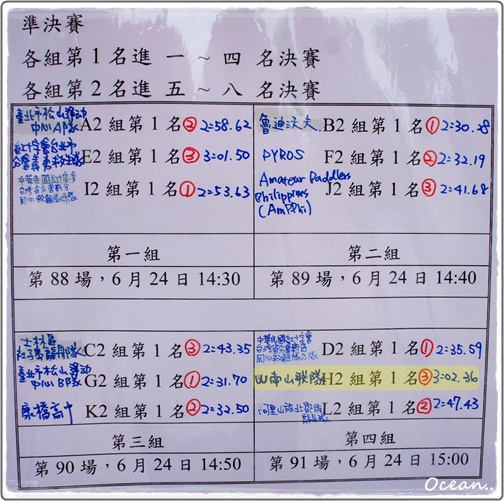 準決賽
各組第 1 名進 一 ~ 四 名決賽
各組第 2 名進 五 ~ 八 名決賽
臺北市松山運动
中心A隊 A2 組第 1 名 ② 2=58.62
紅十字會台北市
E2 組第 1 名 ③ 3=01.50
I2 組第 1 名 ① 2=53.63
第一組
第 88 場，6 月 24 日 14:30
魯迪沃夫 B2 組第 1 名 ① 2=30.28
PYROS F2 組第 1 名 ② 2=32.19
Amateur Paddlers
Philippines J2 組第 1 名 ③ 2=41.68
(AmPPhi)
第二組
第 89 場，6 月 24 日 14:40
士林區
C2 組第 1 名 ③ 2=43.35
臺北市松山運动
中心B隊 G2 組第 1 名 ① 2=31.70
泉橋高中 K2 組第 1 名 ② 2=32.50
第三組
第 90 場，6 月 24 日 14:50
中華民國紅十字會
D2 組第 1 名 ① 2=35.59
山南山联隊 H2 組第 1 名 ③ 3=02.36
L2 組第 1 名 ② 2=47.43
第四組
第 91 場，6 月 24 日 15:00
Ocean..